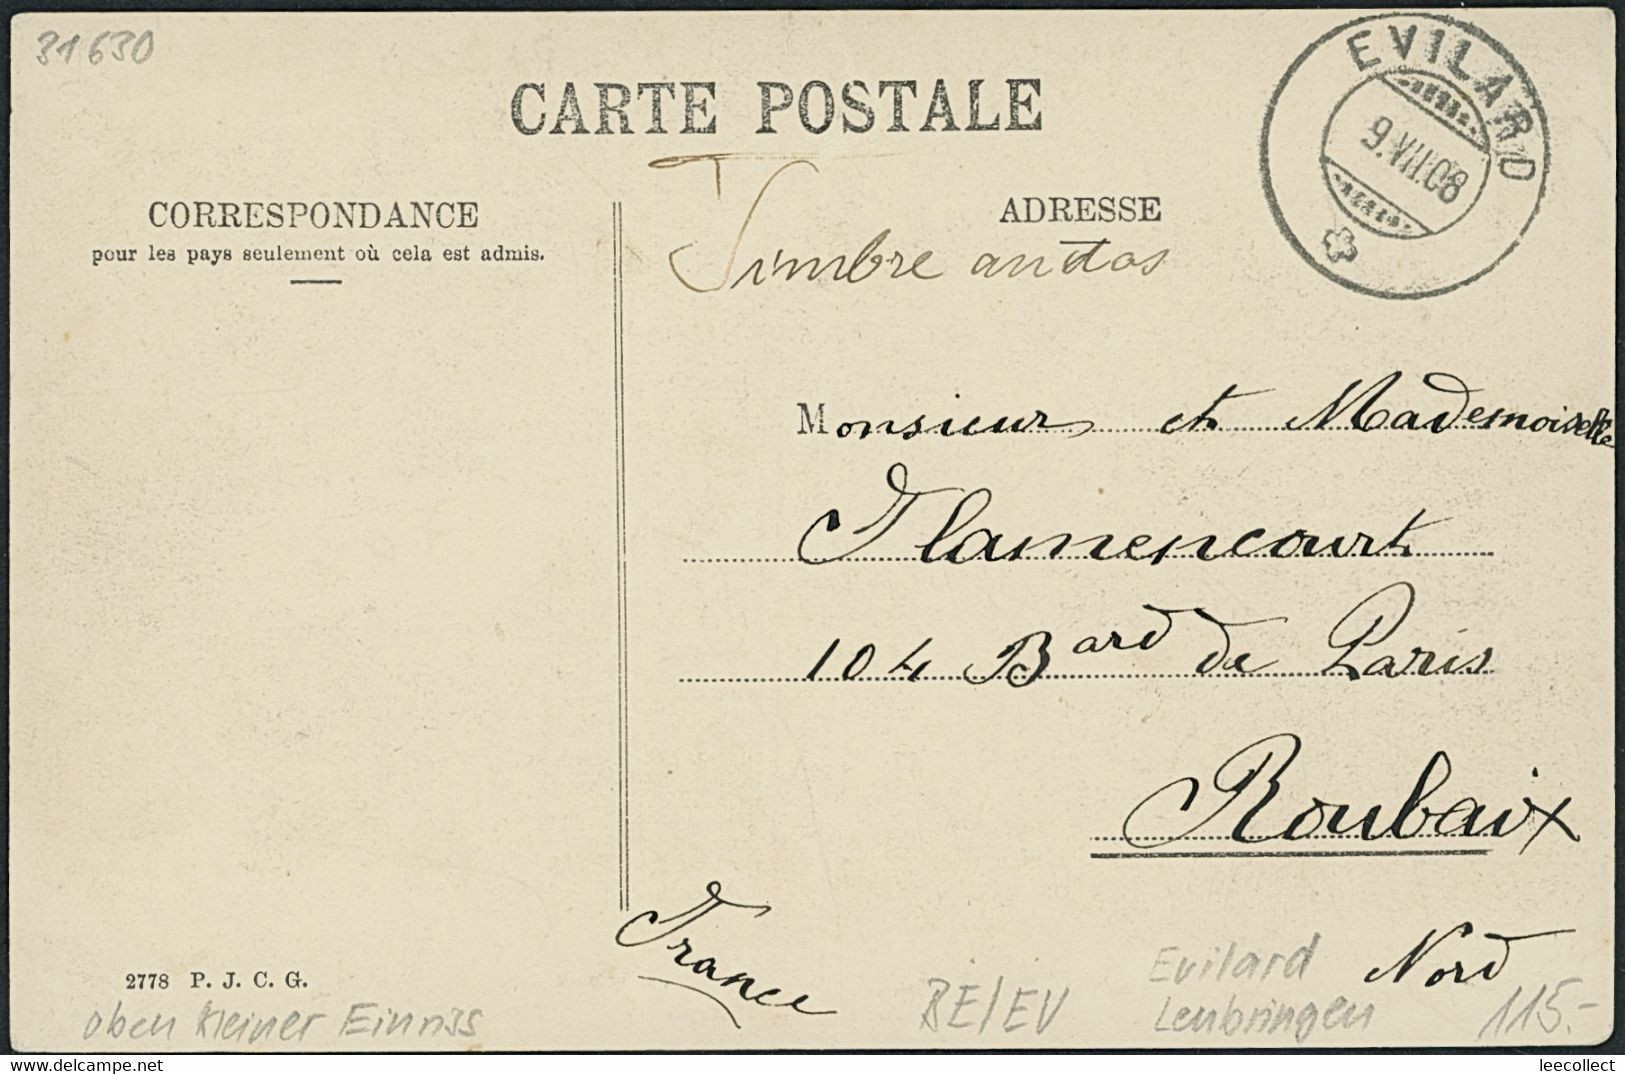 31630
CARTE POSTALE
EVILARD
9.VII.08
CORRESPONDANCE
pour les pays seulement où cela est admis.
ADRESSE
Timbre au dos
Monsieur et Mademoiselle
Flamencourt
104 Bard de Paris
Roubaix
Nord
France
2778 P. J. C. G.
oben kleiner Einriss
BE/EV
Evilard
Leubringen
115.-
delcampe.net
leecollect